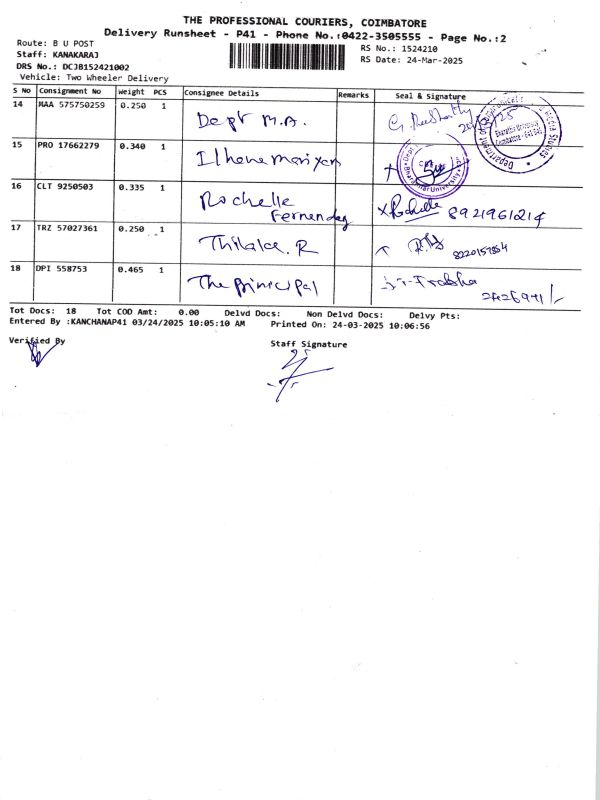 THE PROFESSIONAL COURIERS, COIMBATORE
Delivery Runsheet - P41 - Phone No.:0422-3505555 - Page No.:2
Route: B U POST
Staff: KANAKARAJ
DRS No.: DCJB152421002
Vehicle: Two Wheeler Delivery
RS No.: 1524210
RS Date: 24-Mar-2025
S No Consignment No Weight PCS Consignee Details Remarks Seal & Signature
14 MAA 575750259 0.250 1 Dept M.A.
15 PRO 17662279 0.340 1
16 CLT 9250503 0.335 1 Rochelle Fernandez Rochelle 8921961214
17 TRZ 57027361 0.250 1 Thilaka. R
18 DPI 558753 0.465 1 The principal
Tot Docs: 18 Tot COD Amt: 0.00 Delvd Docs: Non Delvd Docs: Delvy Pts:
Entered By :KANCHANAP41 03/24/2025 10:05:10 AM Printed On: 24-03-2025 10:06:56
Verified By
Staff Signature